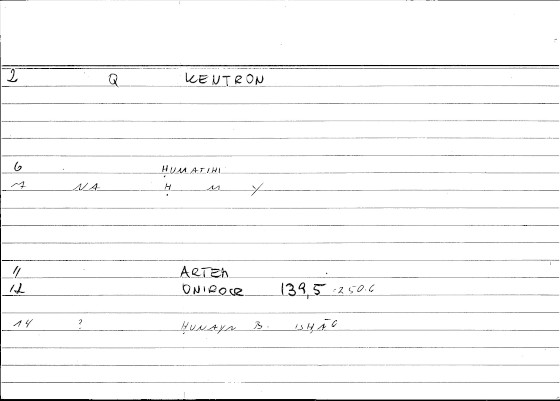 2 Q KENTRON
6 ḤUMATIHI
7 NA Ḥ M Y
11 ARTEM
12 ONIROCR 139,5-250.6
14 ? ḤUNAYN B. ISḤĀQ